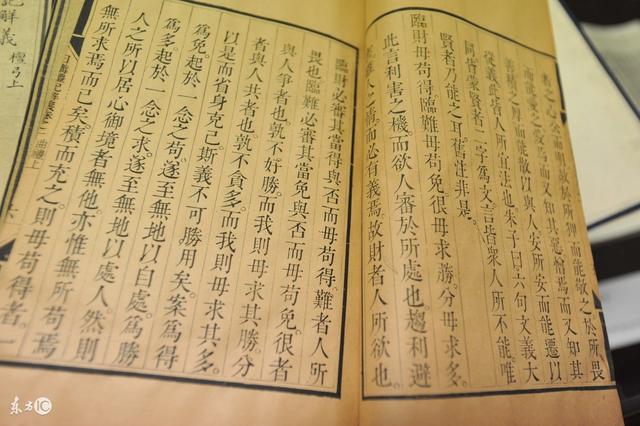 故於所狎而能敬之於所畏
而能愛之愛焉而又知其惡憎焉而又知其
而能散以與人安所安而能遷以
從義此皆人所宜法也朱子曰六句文義大
同皆蒙賢者二字為文言皆衆人所不能唯
賢者乃能之耳舊注非是。
臨財毋苟得。臨難毋苟免很毋求勝。分毋求多。
此言利害之機。而欲人審於所處也趨利避
雖人之情而必有義焉。故財者人所欲也。
臨財必審其當得與否而毋苟得。難者人所
畏也臨難必審其當免與否而毋苟免。很者
與人爭者也孰不好勝。而我則毋求其勝。分
者與人共者也孰不貪多。而我則毋求其多。
以是而省身克己斯義不可勝用矣。案為得
為免起於一念之苟。遂至無地以自處。為勝
為多。起於一念之求。遂至無地以處人。然則
人之所以居心御境者無他。亦惟無所苟焉
無所求焉而已矣。積而充之。則毋苟得者。一
日講禮記解義卷二 曲禮上
記解義 檀弓上
東方IC